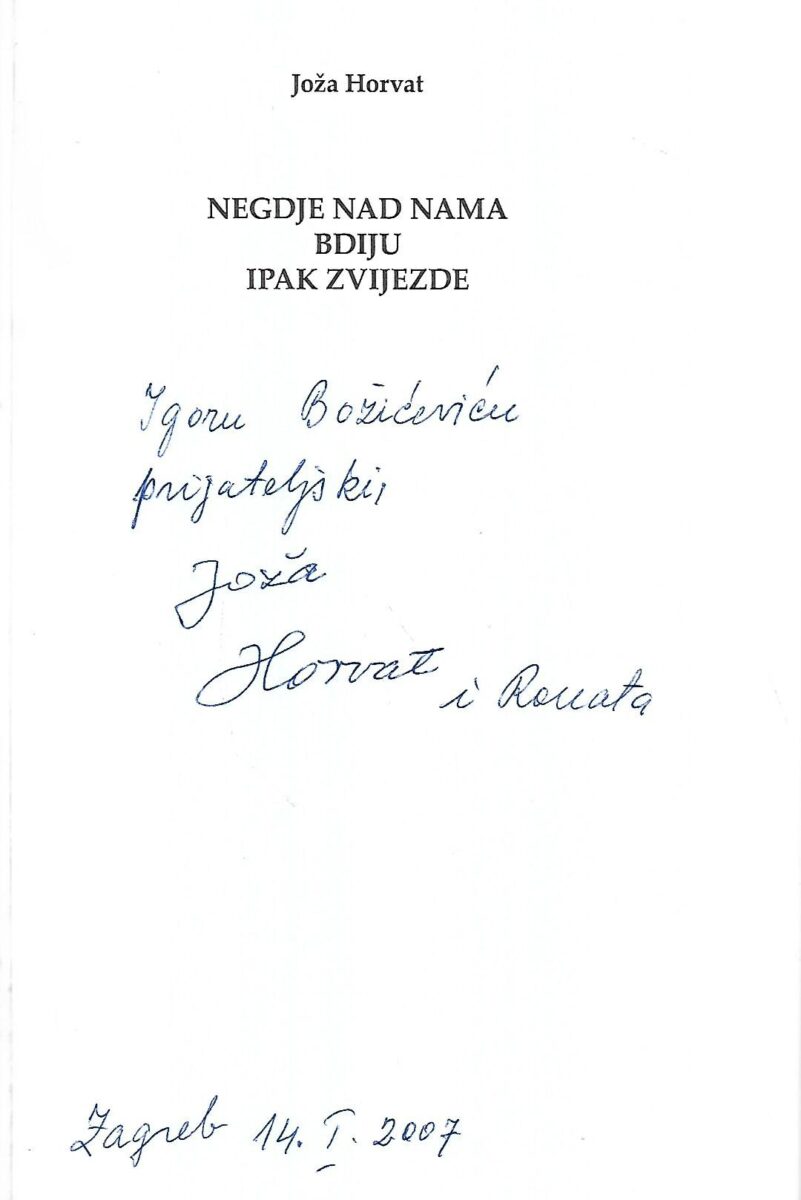 Joža Horvat
NEGDJE NAD NAMA
BDIJU
IPAK ZVIJEZDE
Igoru Božićeviću
prijateljski,
Joža
Horvat
i Renata
Zagreb 14. I. 2007